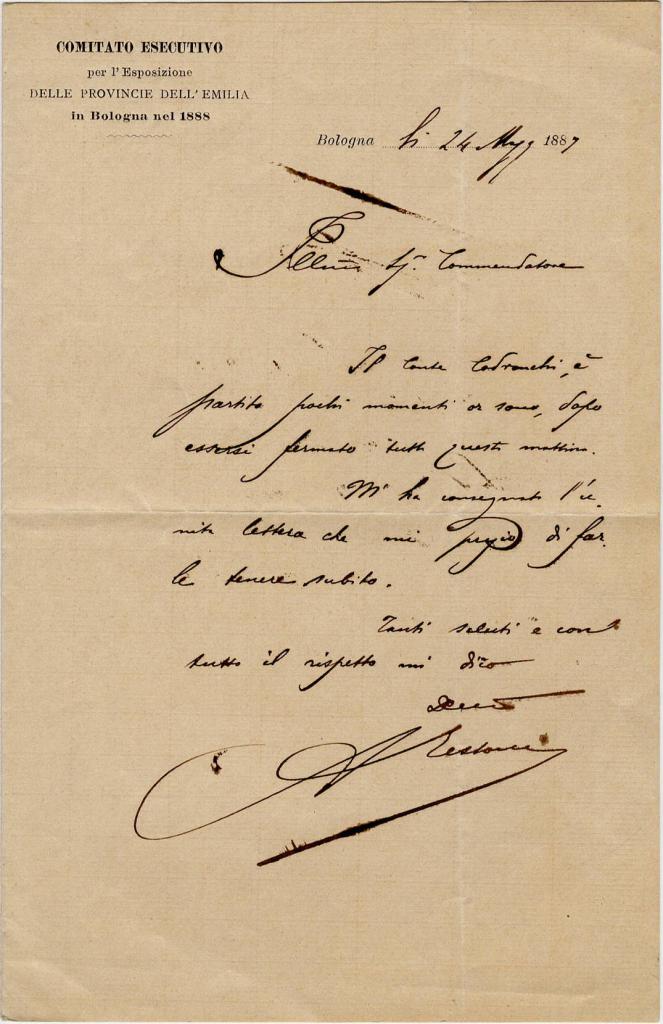 COMITATO ESECUTIVO
per l'Esposizione
DELLE PROVINCIE DELL'EMILIA
in Bologna nel 1888
Bologna li 24 Magg 1887
Illmo Sigr. Commendatore
Il Conte Codronchi, è
partito pochi momenti or sono, dopo
essersi fermato tutta questa mattina.
Mi ha consegnato l'u-
nita lettera che mi pregio di far-
le tenere subito.
Tanti saluti e con
tutto il rispetto mi dico
A Testoni